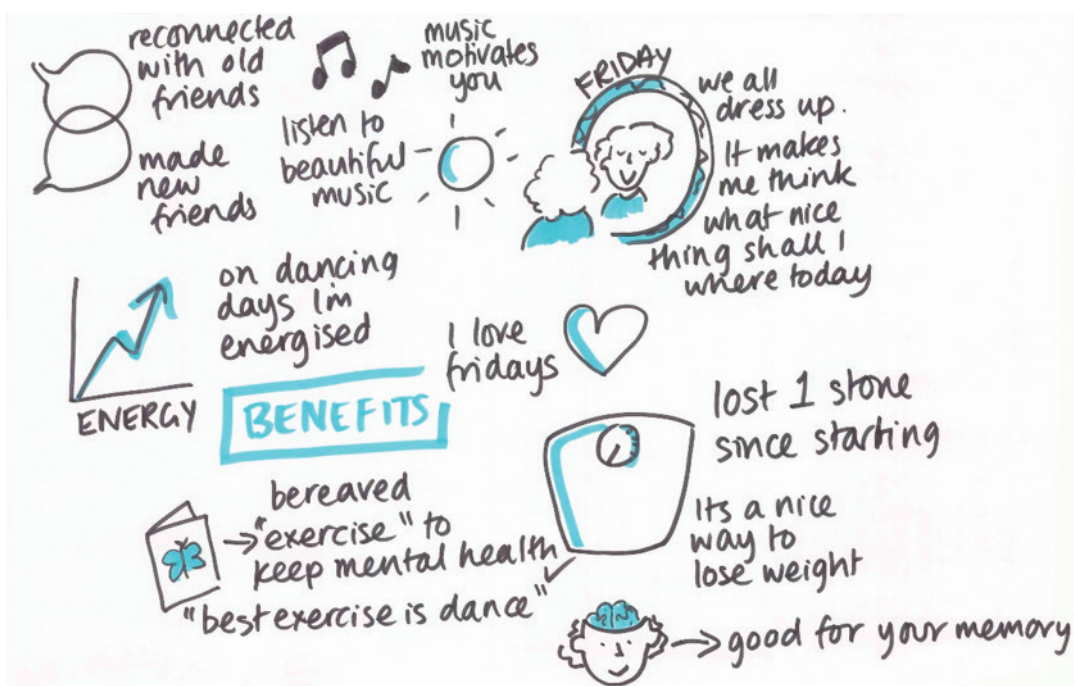 reconnected
with old
friends
made
new
friends
music
motivates
you
listen to
beautiful
music
FRIDAY
we all
dress up.
It makes
me think
what nice
thing shall I
where today
on dancing
days I'm
energised
ENERGY
I love
fridays
BENEFITS
lost 1 stone
since starting
Its a nice
way to
lose weight
bereaved
"exercise" to
keep mental health
"best exercise is dance"
good for your memory